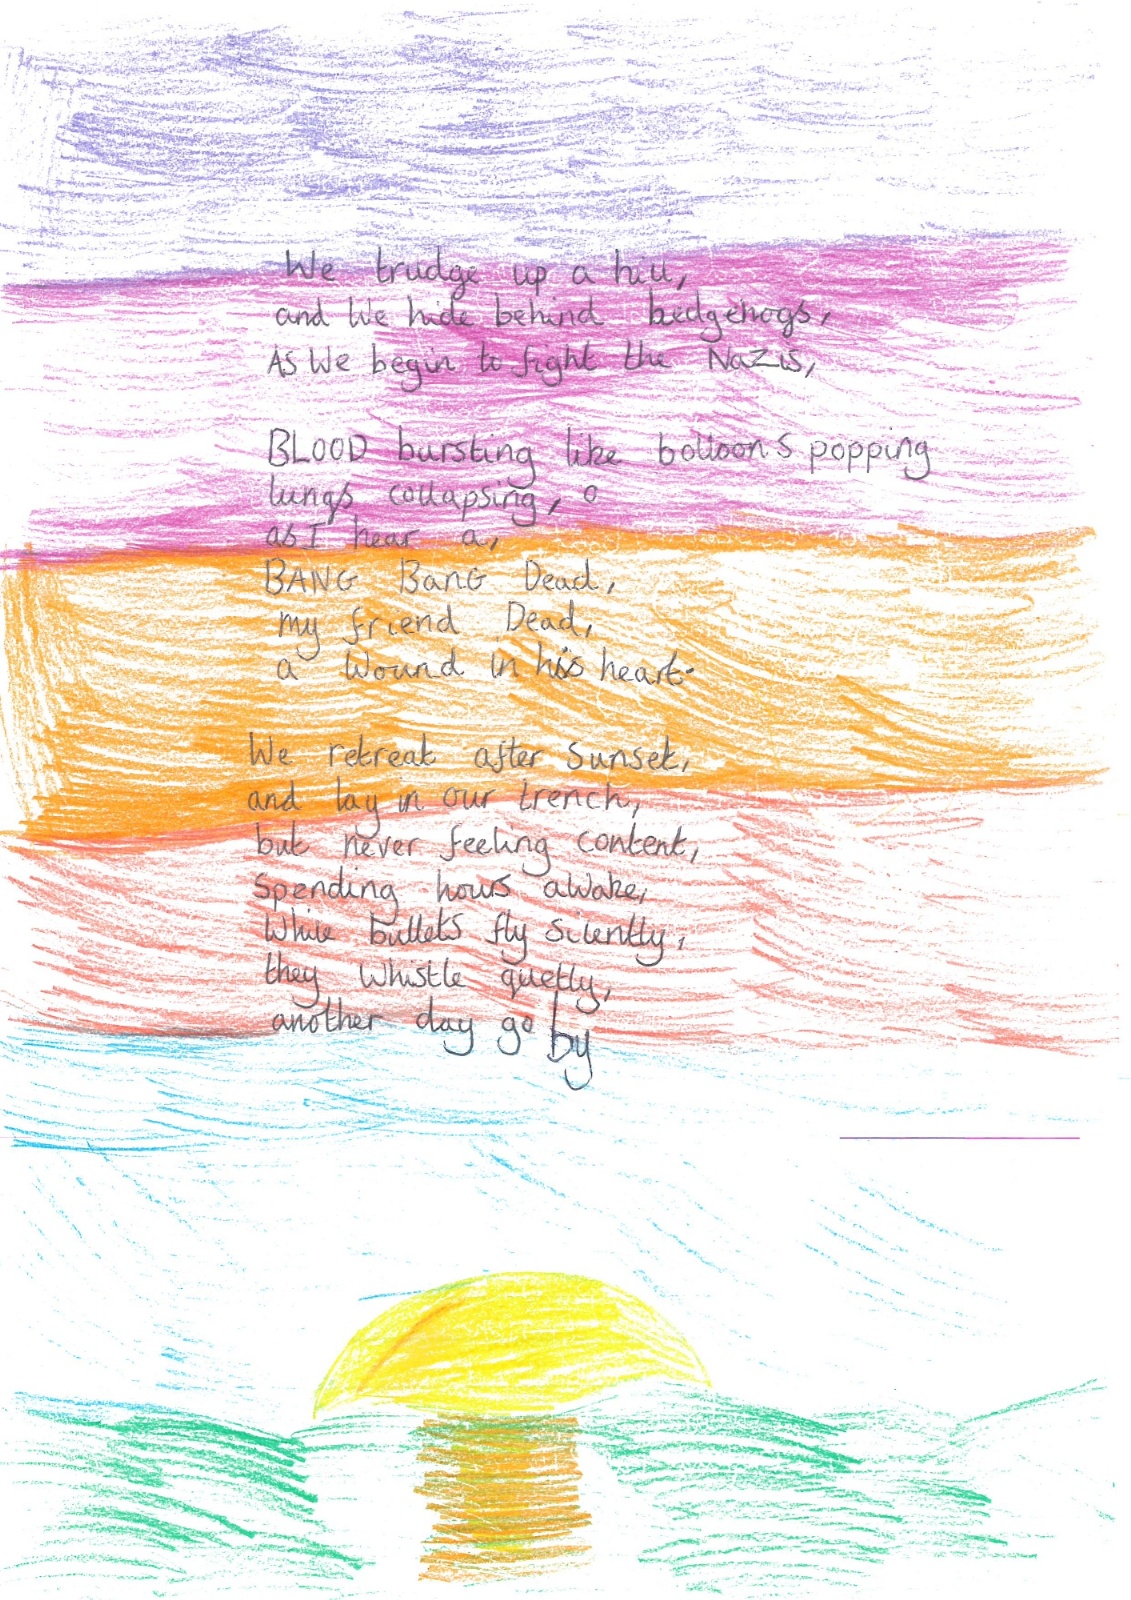 We trudge up a hill,
and We hide behind hedgehogs,
As We begin to fight the Nazis,
BLOOD bursting like balloons popping
lungs collapsing,
as I hear a,
BANG BanG Dead,
my friend Dead,
a Wound in his heart.
We retreat after Sunset,
and lay in our trench,
but never feeling content,
Spending hours aWake,
While bullets fly Silently,
they Whistle quetly,
another day go by